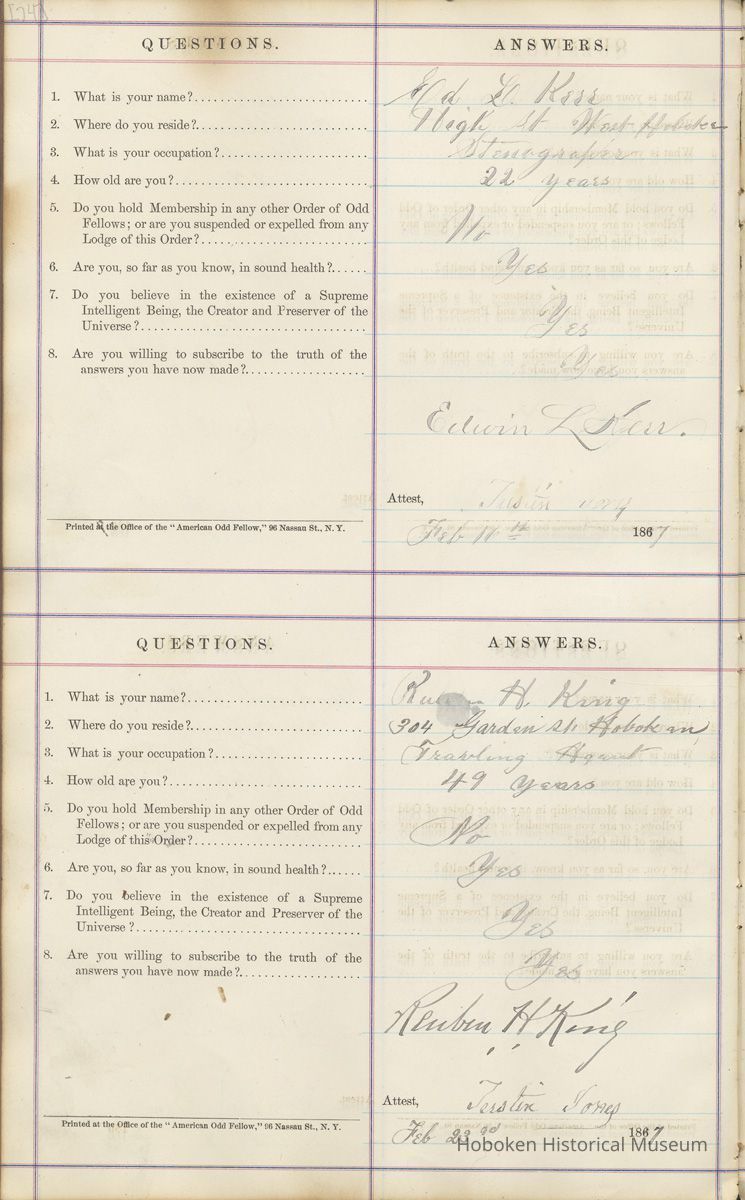 [74]
QUESTIONS. ANSWERS.
1. What is your name? Ed L. Kerr
2. Where do you reside? High st West Hoboken
3. What is your occupation? Stenographer
4. How old are you? 22 years
5. Do you hold Membership in any other Order of Odd
Fellows; or are you suspended or expelled from any
Lodge of this Order? No
6. Are you, so far as you know, in sound health? Yes
7. Do you believe in the existence of a Supreme
Intelligent Being, the Creator and Preserver of the
Universe? Yes
8. Are you willing to subscribe to the truth of the
answers you have now made? Yes
Edwin L Kerr.
Attest,
Printed at the Office of the "American Odd Fellow," 96 Nassau St., N. Y. Feb 11th 1867
QUESTIONS. ANSWERS.
1. What is your name? H. King
2. Where do you reside? 304 Garden st. Hoboken
3. What is your occupation? Travling Agent
4. How old are you? 49 years
5. Do you hold Membership in any other Order of Odd
Fellows; or are you suspended or expelled from any
Lodge of this Order? No
6. Are you, so far as you know, in sound health? Yes
7. Do you believe in the existence of a Supreme
Intelligent Being, the Creator and Preserver of the
Universe? Yes
8. Are you willing to subscribe to the truth of the
answers you have now made? Yes
Reuben H King
Attest, Jones
Printed at the Office of the "American Odd Fellow," 96 Nassau St., N. Y. Feb 23rd 1867
Hoboken Historical Museum